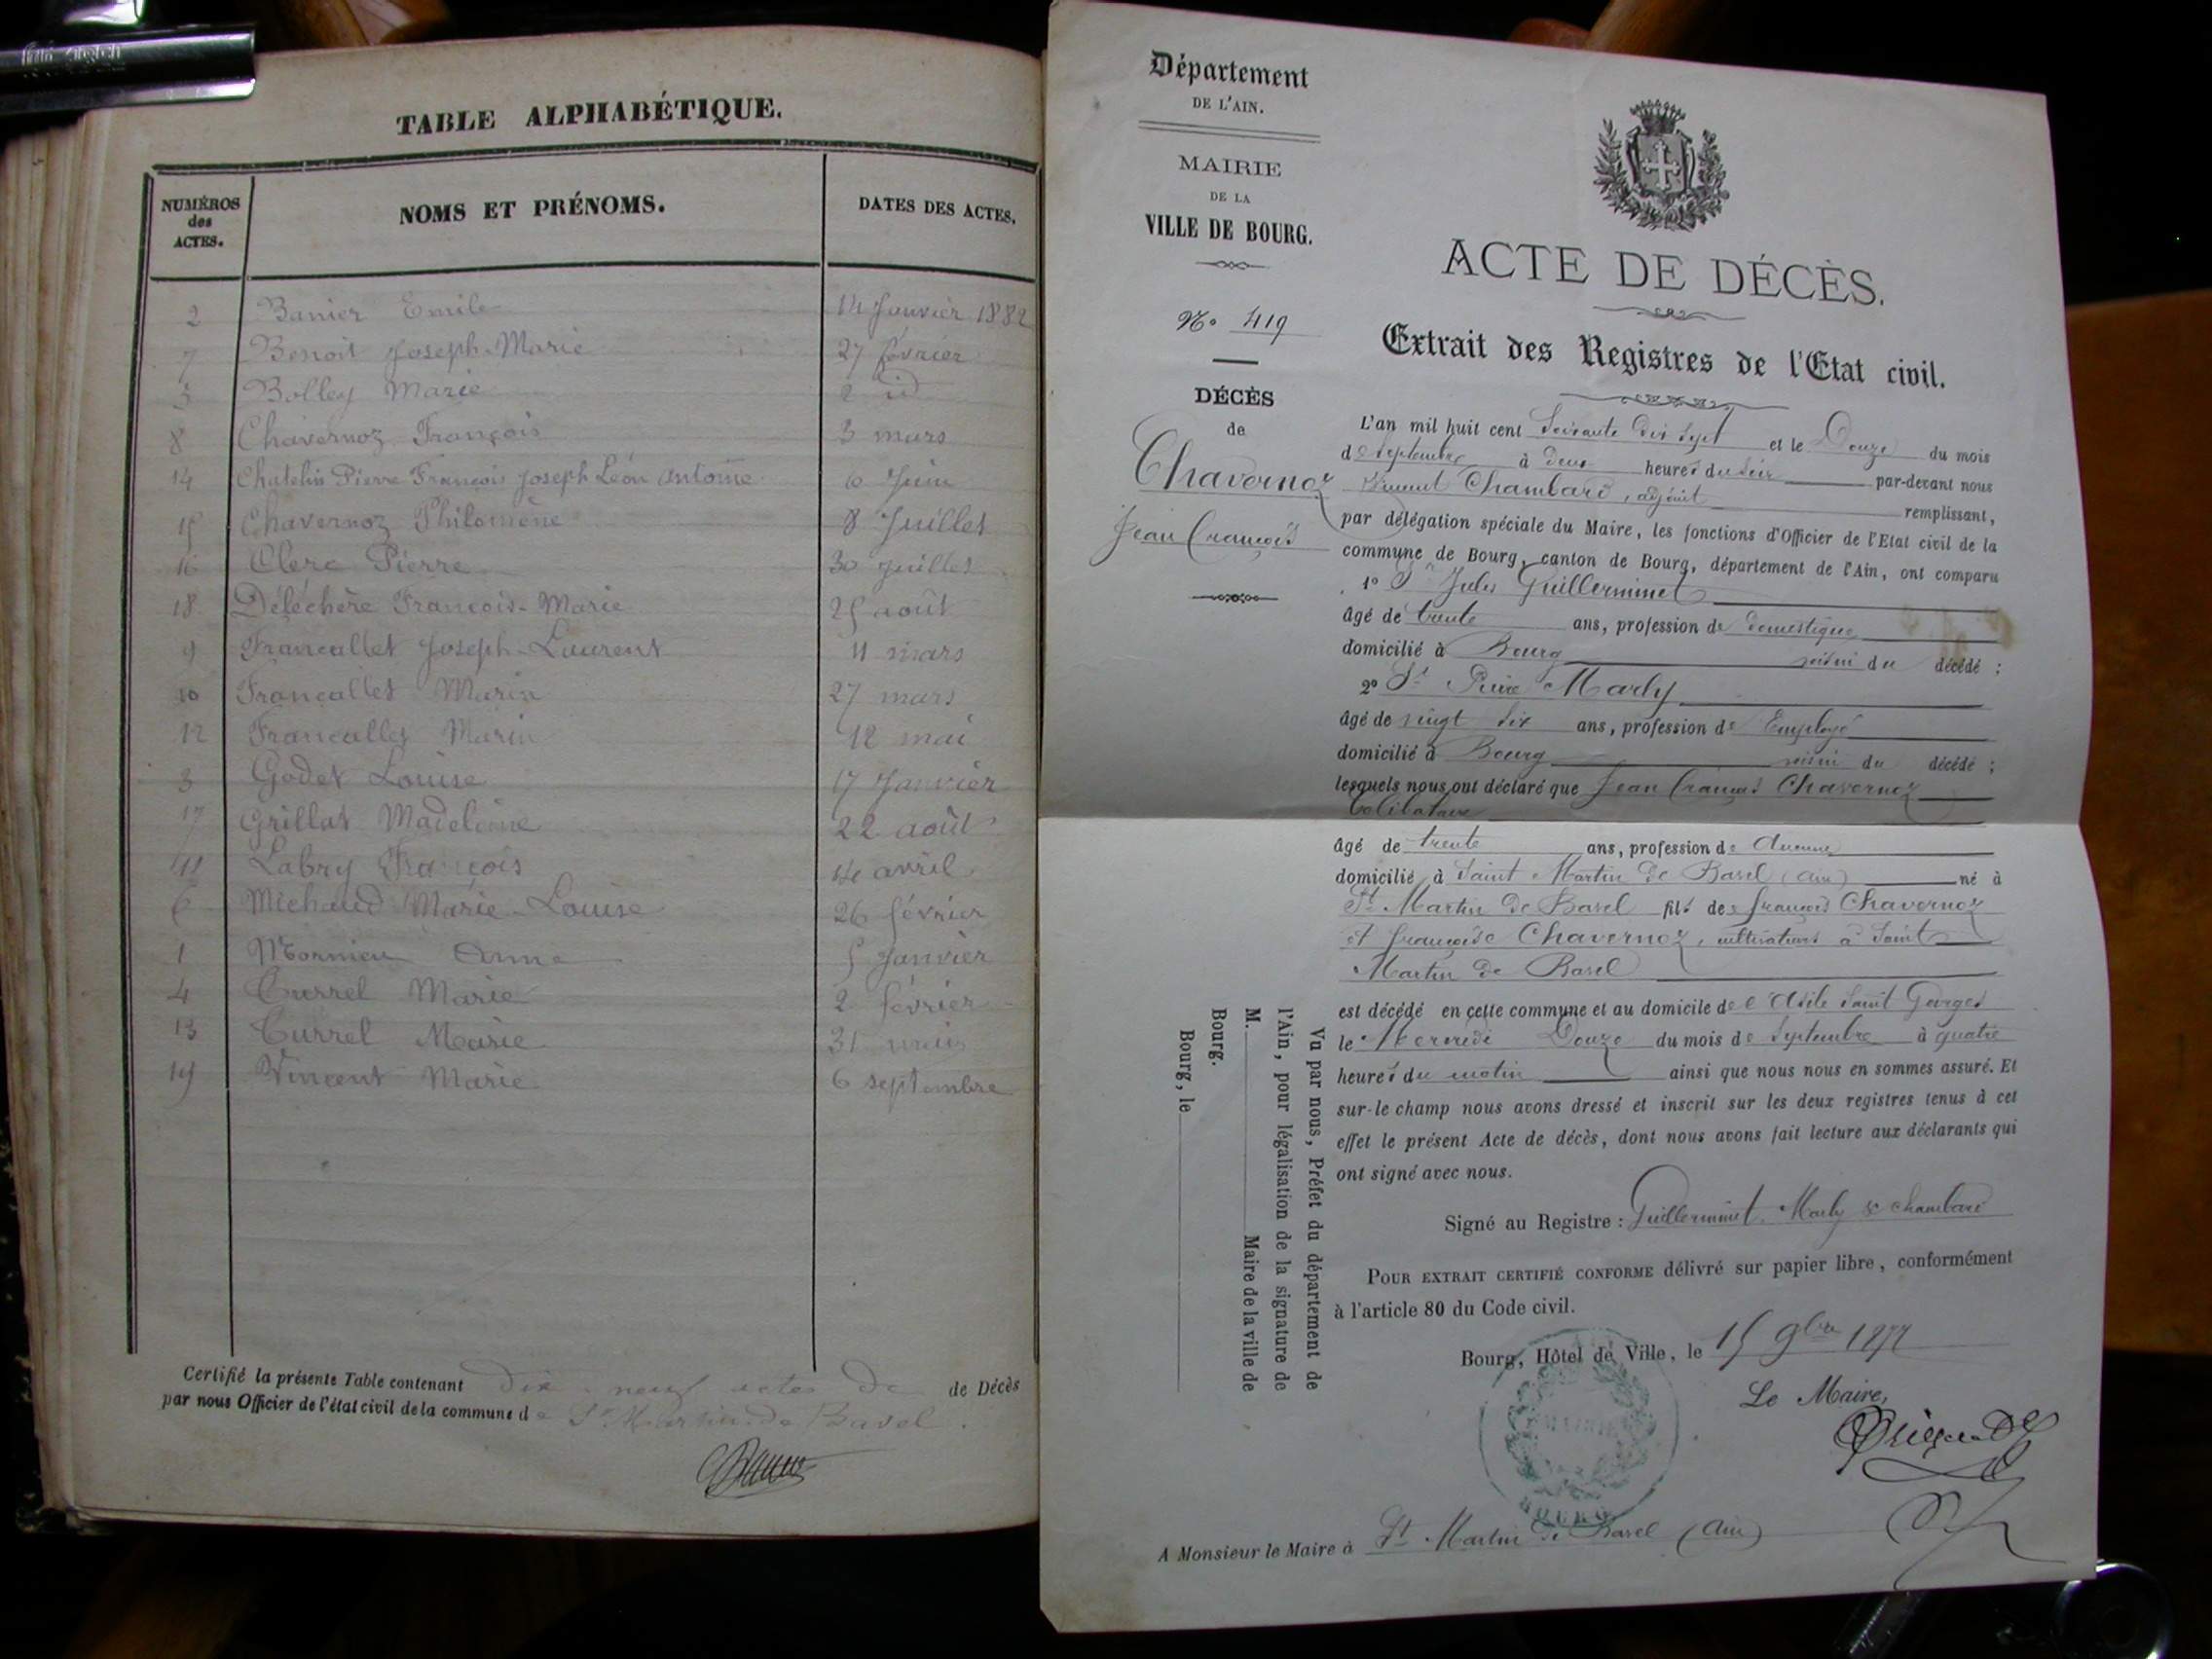 TABLE ALPHABÉTIQUE.
NUMÉROS des ACTES. NOMS ET PRÉNOMS. DATES DES ACTES.
2 Banier Emile 14 Janvier 1882
7 Benoit Joseph-Marie 27 février
5 Bolley Marie 2 id
8 Chavernoz François 3 mars
14 Chatelin Pierre François Joseph Léon Antoine 6 Juin
15 Chavernoz Philomène 8 Juillet
16 Clerc Pierre 30 Juillet
18 Deléchère François-Marie 25 août
9 Francallet Joseph-Laurent 11 mars
10 Francallet Marin 27 mars
12 Francallet Marin 12 mai
3 Godet Louise 17 Janvier
17 Grillat Madeleine 22 août
11 Labry François avril
6 Michaud Marie-Louise 26 février
1 Mornieu Anna 5 Janvier
4 Currel Marie 2 février
13 Currel Marie 31 mai
19 Vincent Marie 6 septembre
Certifié la présente Table contenant dix-neuf actes de de Décès
par nous Officier de l'état civil de la commune de St Martin-de Bavel.
Département
DE L'AIN.
MAIRIE
DE LA
VILLE DE BOURG.
No 419
DÉCÈS
de
Chavernoz
Jean François
ACTE DE DÉCÈS.
Extrait des Registres de l'Etat civil.
L'an mil huit cent Soixante dix sept et le Douze du mois
de Septembre à deux heures du soir par-devant nous
Chambard, adjoint remplissant,
par délégation spéciale du Maire, les fonctions d'Officier de l'Etat civil de la
commune de Bourg, canton de Bourg, département de l'Ain, ont comparu
1° Sr Jules Guillerminet
âgé de trente ans, profession de domestique
domicilié à Bourg voisin du décédé ;
2° Sr Pierre Marly
âgé de vingt six ans, profession de Employé
domicilié à Bourg voisin du décédé ;
lesquels nous ont déclaré que Jean François Chavernoz
Célibataire
âgé de trente ans, profession de Aucune
domicilié à Saint Martin de Bavel (Ain) né à
St Martin de Bavel fils de François Chavernoz
et Françoise Chavernoz, cultivateurs à Saint
Martin de Bavel
est décédé en cette commune et au domicile de l'Asile Saint Georges
le Mercredi Douze du mois de Septembre à quatre
heures du matin ainsi que nous nous en sommes assuré. Et
sur-le champ nous avons dressé et inscrit sur les deux registres tenus à cet
effet le présent Acte de décès, dont nous avons fait lecture aux déclarants qui
ont signé avec nous.
Signé au Registre : Guillerminet, Marly & Chambard
POUR EXTRAIT CERTIFIÉ CONFORME délivré sur papier libre, conformément
à l'article 80 du Code civil.
Bourg, Hôtel de Ville, le 15 9bre 1877
Le Maire,
A Monsieur le Maire à St Martin de Bavel (Ain)
Vu par nous, Préfet du département de
l'Ain, pour légalisation de la signature de
M. Maire de la ville de
Bourg.
Bourg, le
BOURG